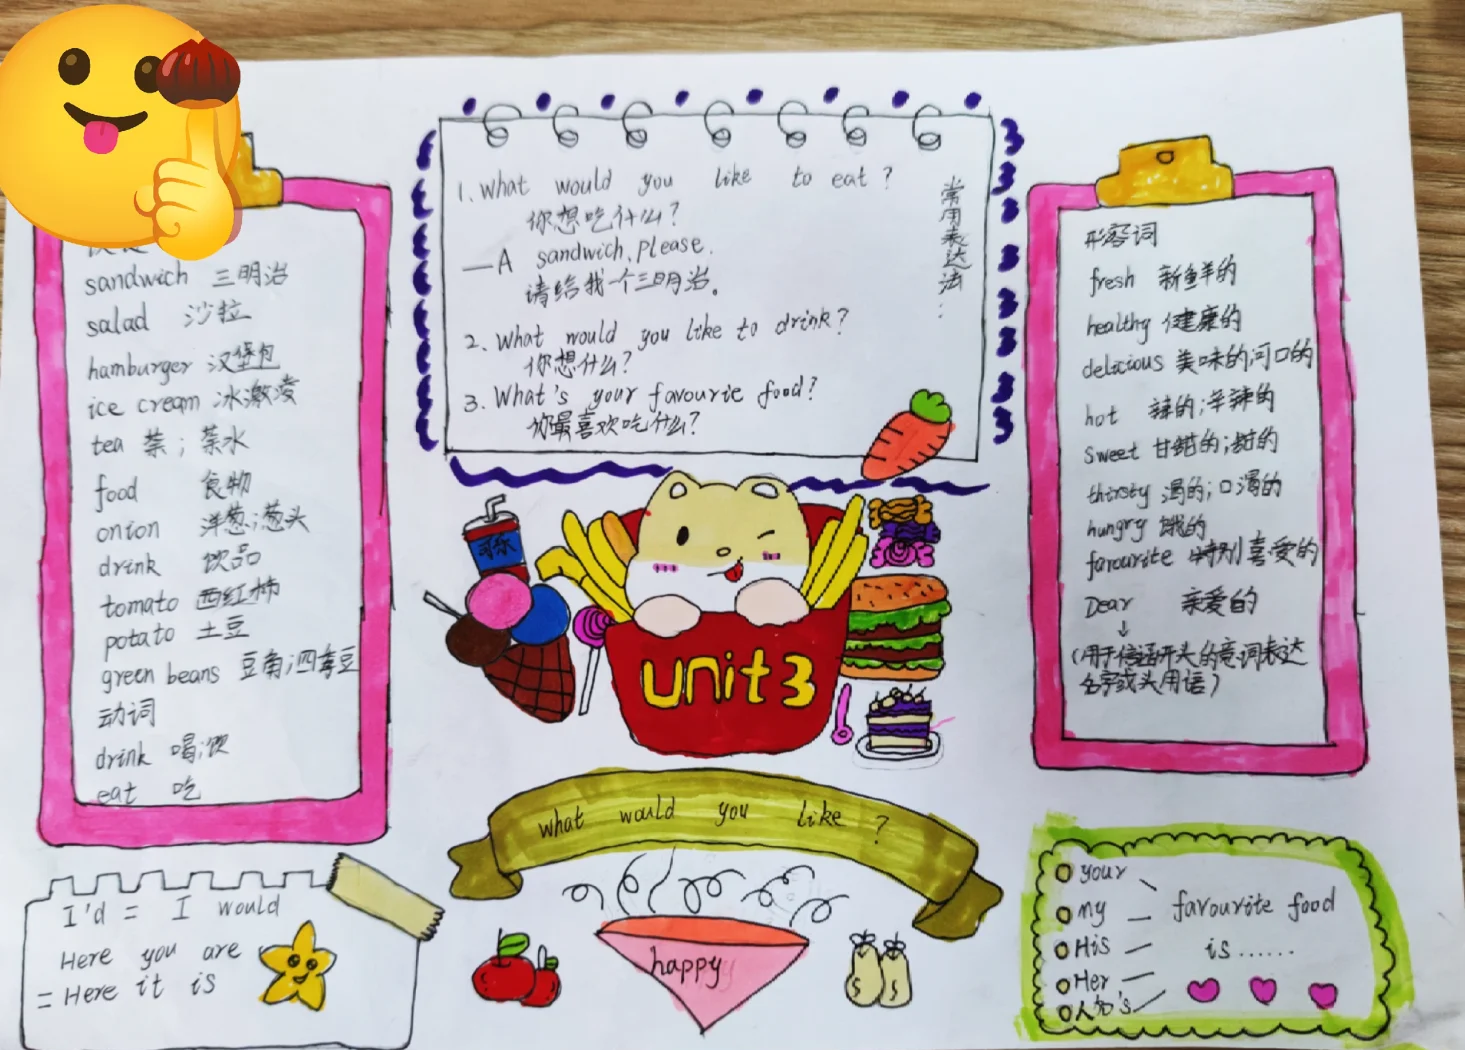 sandwich 三明治
salad 沙拉
hamburger 汉堡包
ice cream 冰激凌
tea 茶；茶水
food 食物
onion 洋葱；葱头
drink 饮品
tomato 西红柿
potato 土豆
green beans 豆角；四季豆
动词
drink 喝；饮
eat 吃
I'd = I would
Here you are
= Here it is
常用表达法：
1. What would you like to eat?
你想吃什么?
—A sandwich, please.
请给我一个三明治。
2. What would you like to drink?
你想什么?
3. What's your favourite food?
你最喜欢吃什么?
可乐
unit 3
what would you like ?
happy
形容词
fresh 新鲜的
healthy 健康的
delicious 美味的；可口的
hot 辣的；辛辣的
sweet 甘甜的；甜的
thirsty 渴的；口渴的
hungry 饿的
favourite 特别喜爱的
Dear 亲爱的
↓
(用于信函开头的意词表达
名字或头用语)
your
my
His
Her
人名's
favourite food
is ......